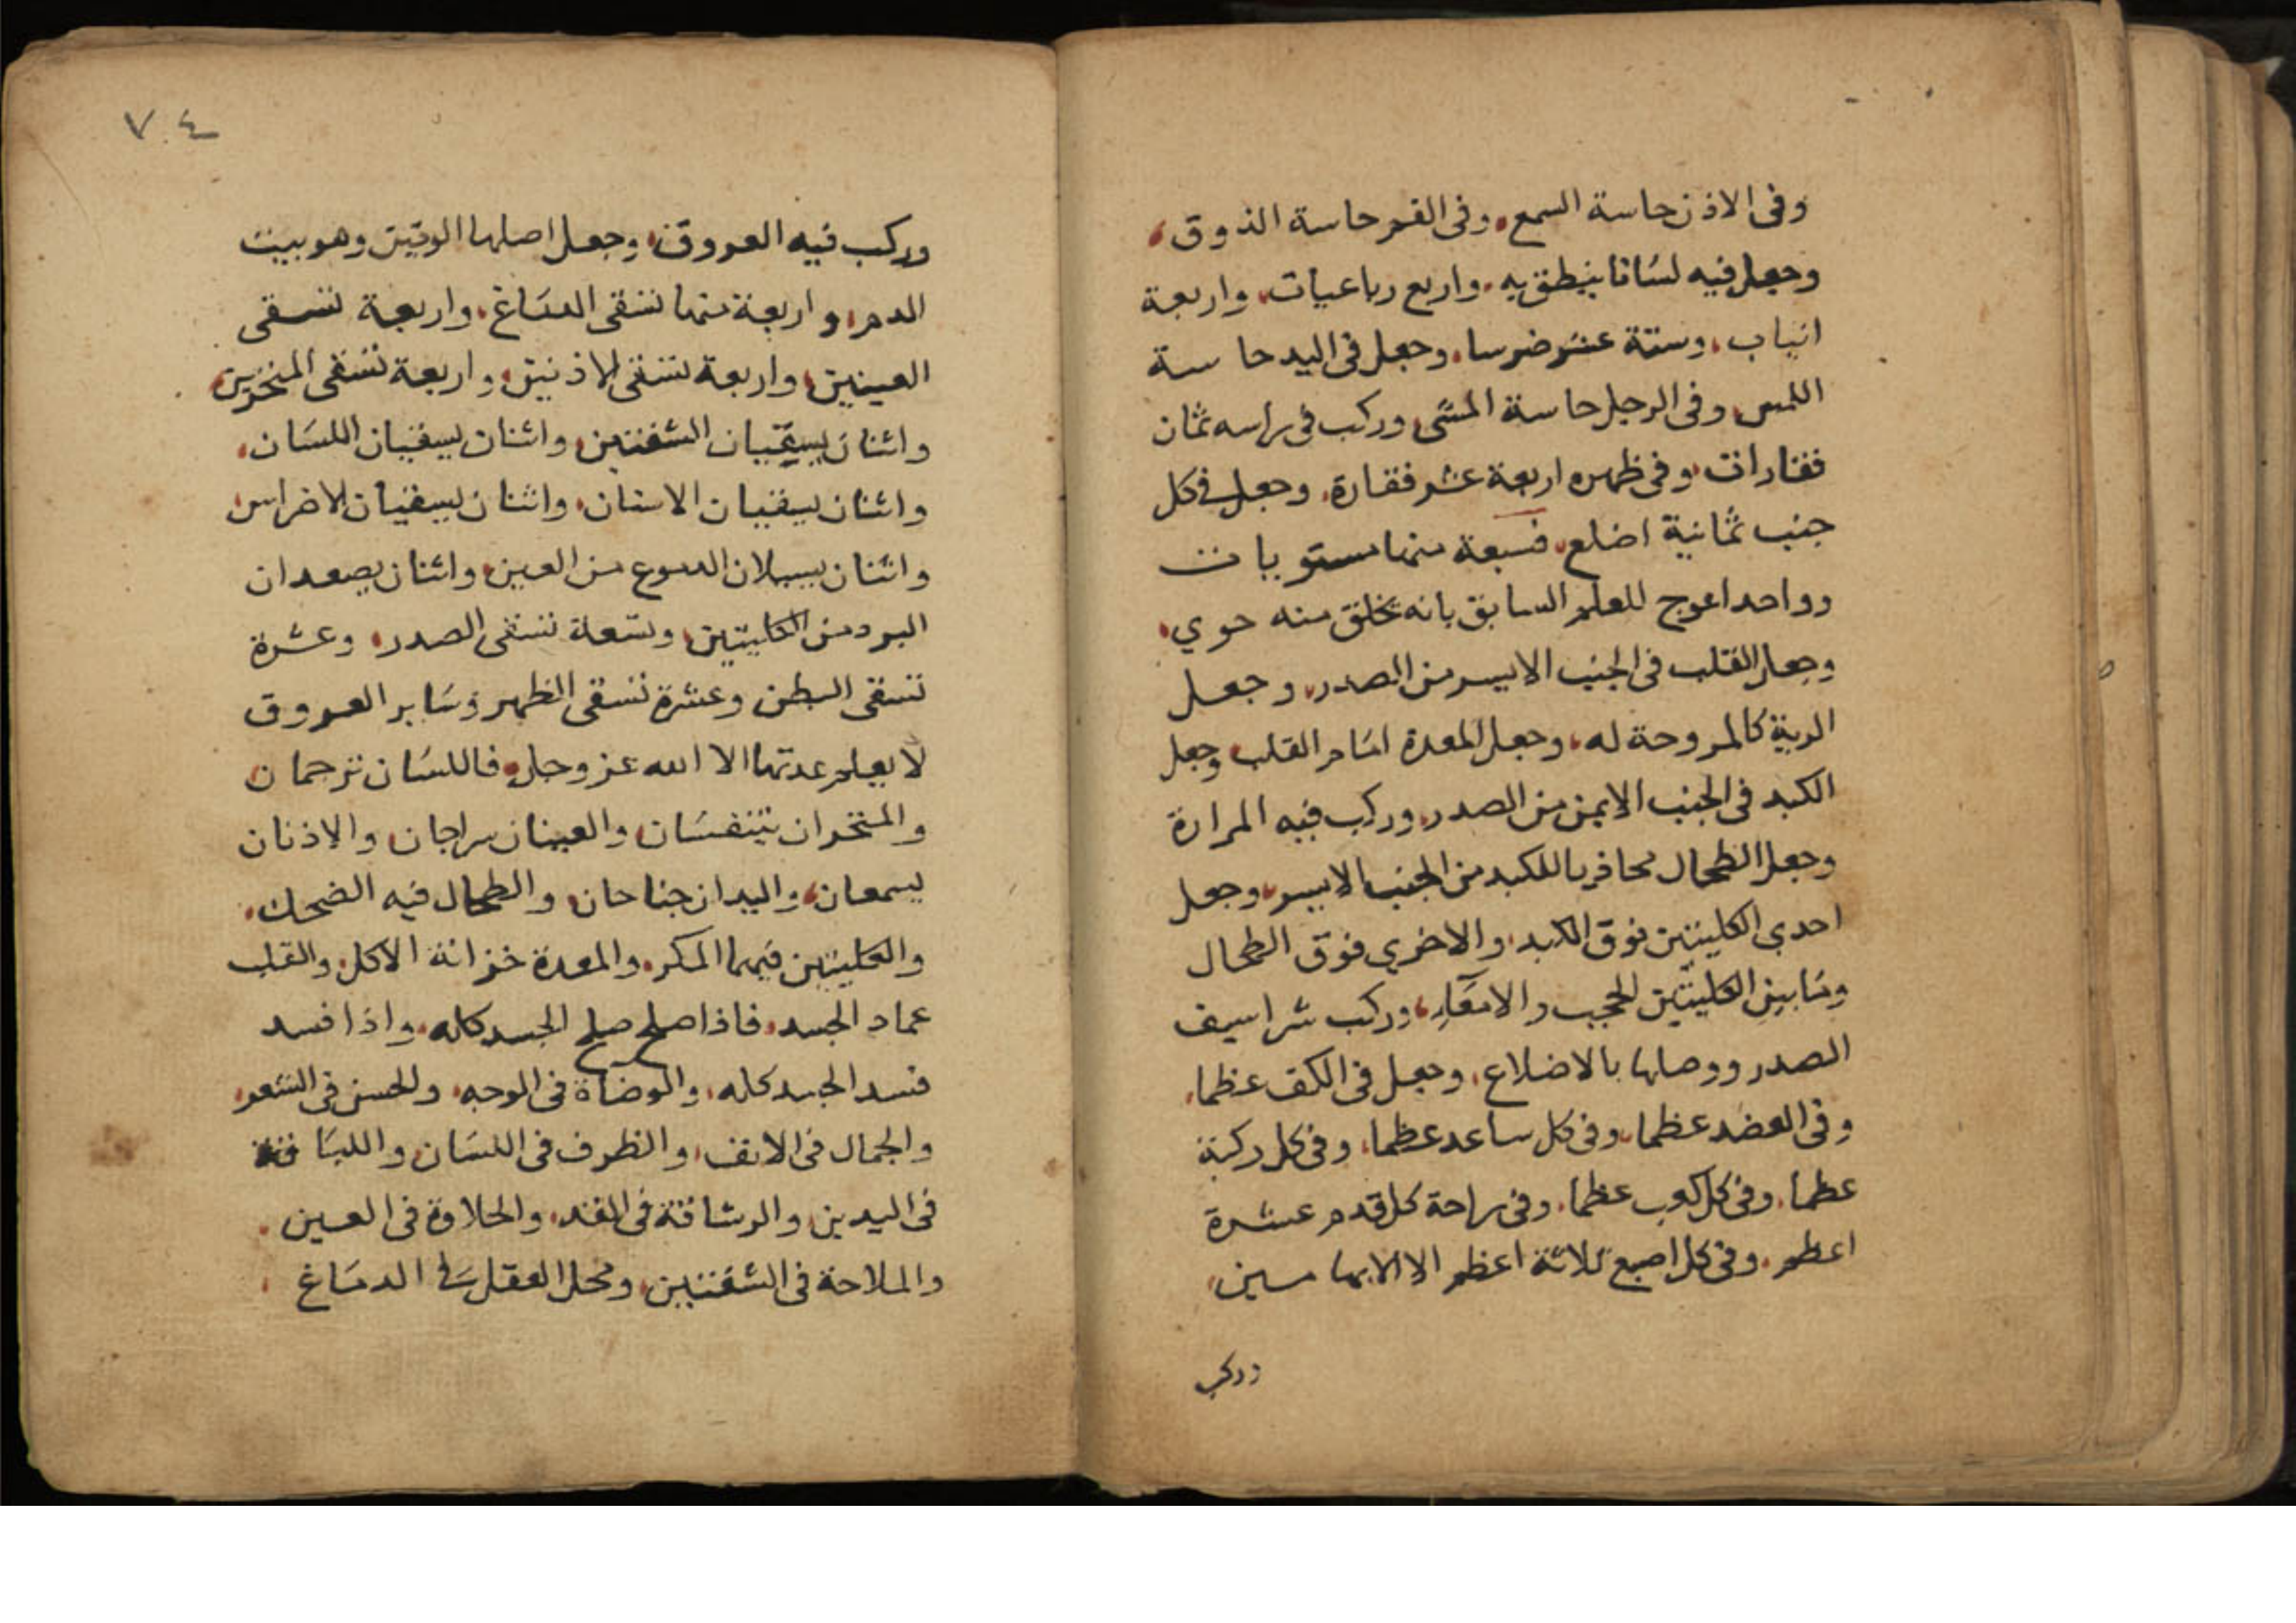 وفى الاذن حاسة السمع، وفى الفم حاسة الذوق،
وجعل فيه لسانا ينطق به، واربع رباعيات، واربعة
انياب، وستة عشر ضرسا، وجعل فى اليد حاسة
اللمس، وفى الرجل حاسة المشى، وركب فى راسه ثمان
فقارات، وفى ظهره اربعة عشر فقارة، وجعل فى كل
جنب ثمانية اضلع، فسبعة منها مستويات
وواحد اعوج للعلم السابق بانه تخلق منه حوي،
وجعل القلب فى الجنب الايسر من الصدر، وجعل
الرية كالمروحة له، وجعل المعدة امام القلب، وجعل
الكبد فى الجنب الايمن من الصدر، وركب فيه المرارة
وجعل الطحال محاذيا للكبد من الجنب الايسر، وجعل
احدى الكليتين فوق الكبد، والاخرى فوق الطحال
وما بين الكليتين الحجب والامعاء، وركب شراسيف
الصدر ووصلها بالاضلاع، وجعل فى الكف عظما،
وفى العضد عظما، وفى كل ساعد عظما، وفى كل ركبة
عظما، وفى كل كعب عظما، وفى راحة كل قدم عشرة
اعظم، وفى كل اصبع ثلاثة اعظم الا الابهامين،
وركب
٧٤
وركب فيه العروق، وجعل اصلها الوتين وهو بيت
الدم، واربعة منها تسقى الدماغ، واربعة تسقى
العينين، واربعة تسقى الاذنين، واربعة تسقى المنخرين،
واثنان يسقيان الشفتين، واثنان يسقيان اللسان،
واثنان يسقيان الاسنان، واثنان يسقيان الاضراس،
واثنان يسيلان الدموع من العين، واثنان يصعدان
البرد من الكليتين، وتسعة تسقى الصدر، وعشرة
تسقى البطن وعشرة تسقى الظهر وساير العروق
لا يعلم عدتها الا الله عز وجل، فاللسان ترجمان،
والمنخران يتنفسان، والعينان سراجان، والاذنان
يسمعان، واليدان جناحان، والطحال فيه الضحك،
والكليتين فيهما المكر، والمعدة خزانة الاكل، والقلب
عماد الجسد، فاذا صلح صلح الجسد كله، واذا فسد
فسد الجسد كله، والوضاة فى الوجه، والحسن فى الشعر،
والجمال فى الانف، والظرف فى اللسان، واللباقة
فى اليدين، والرشاقة فى القد، والحلاوة فى العين،
والملاحة فى الشفتين، ومحل العقل فى الدماغ،